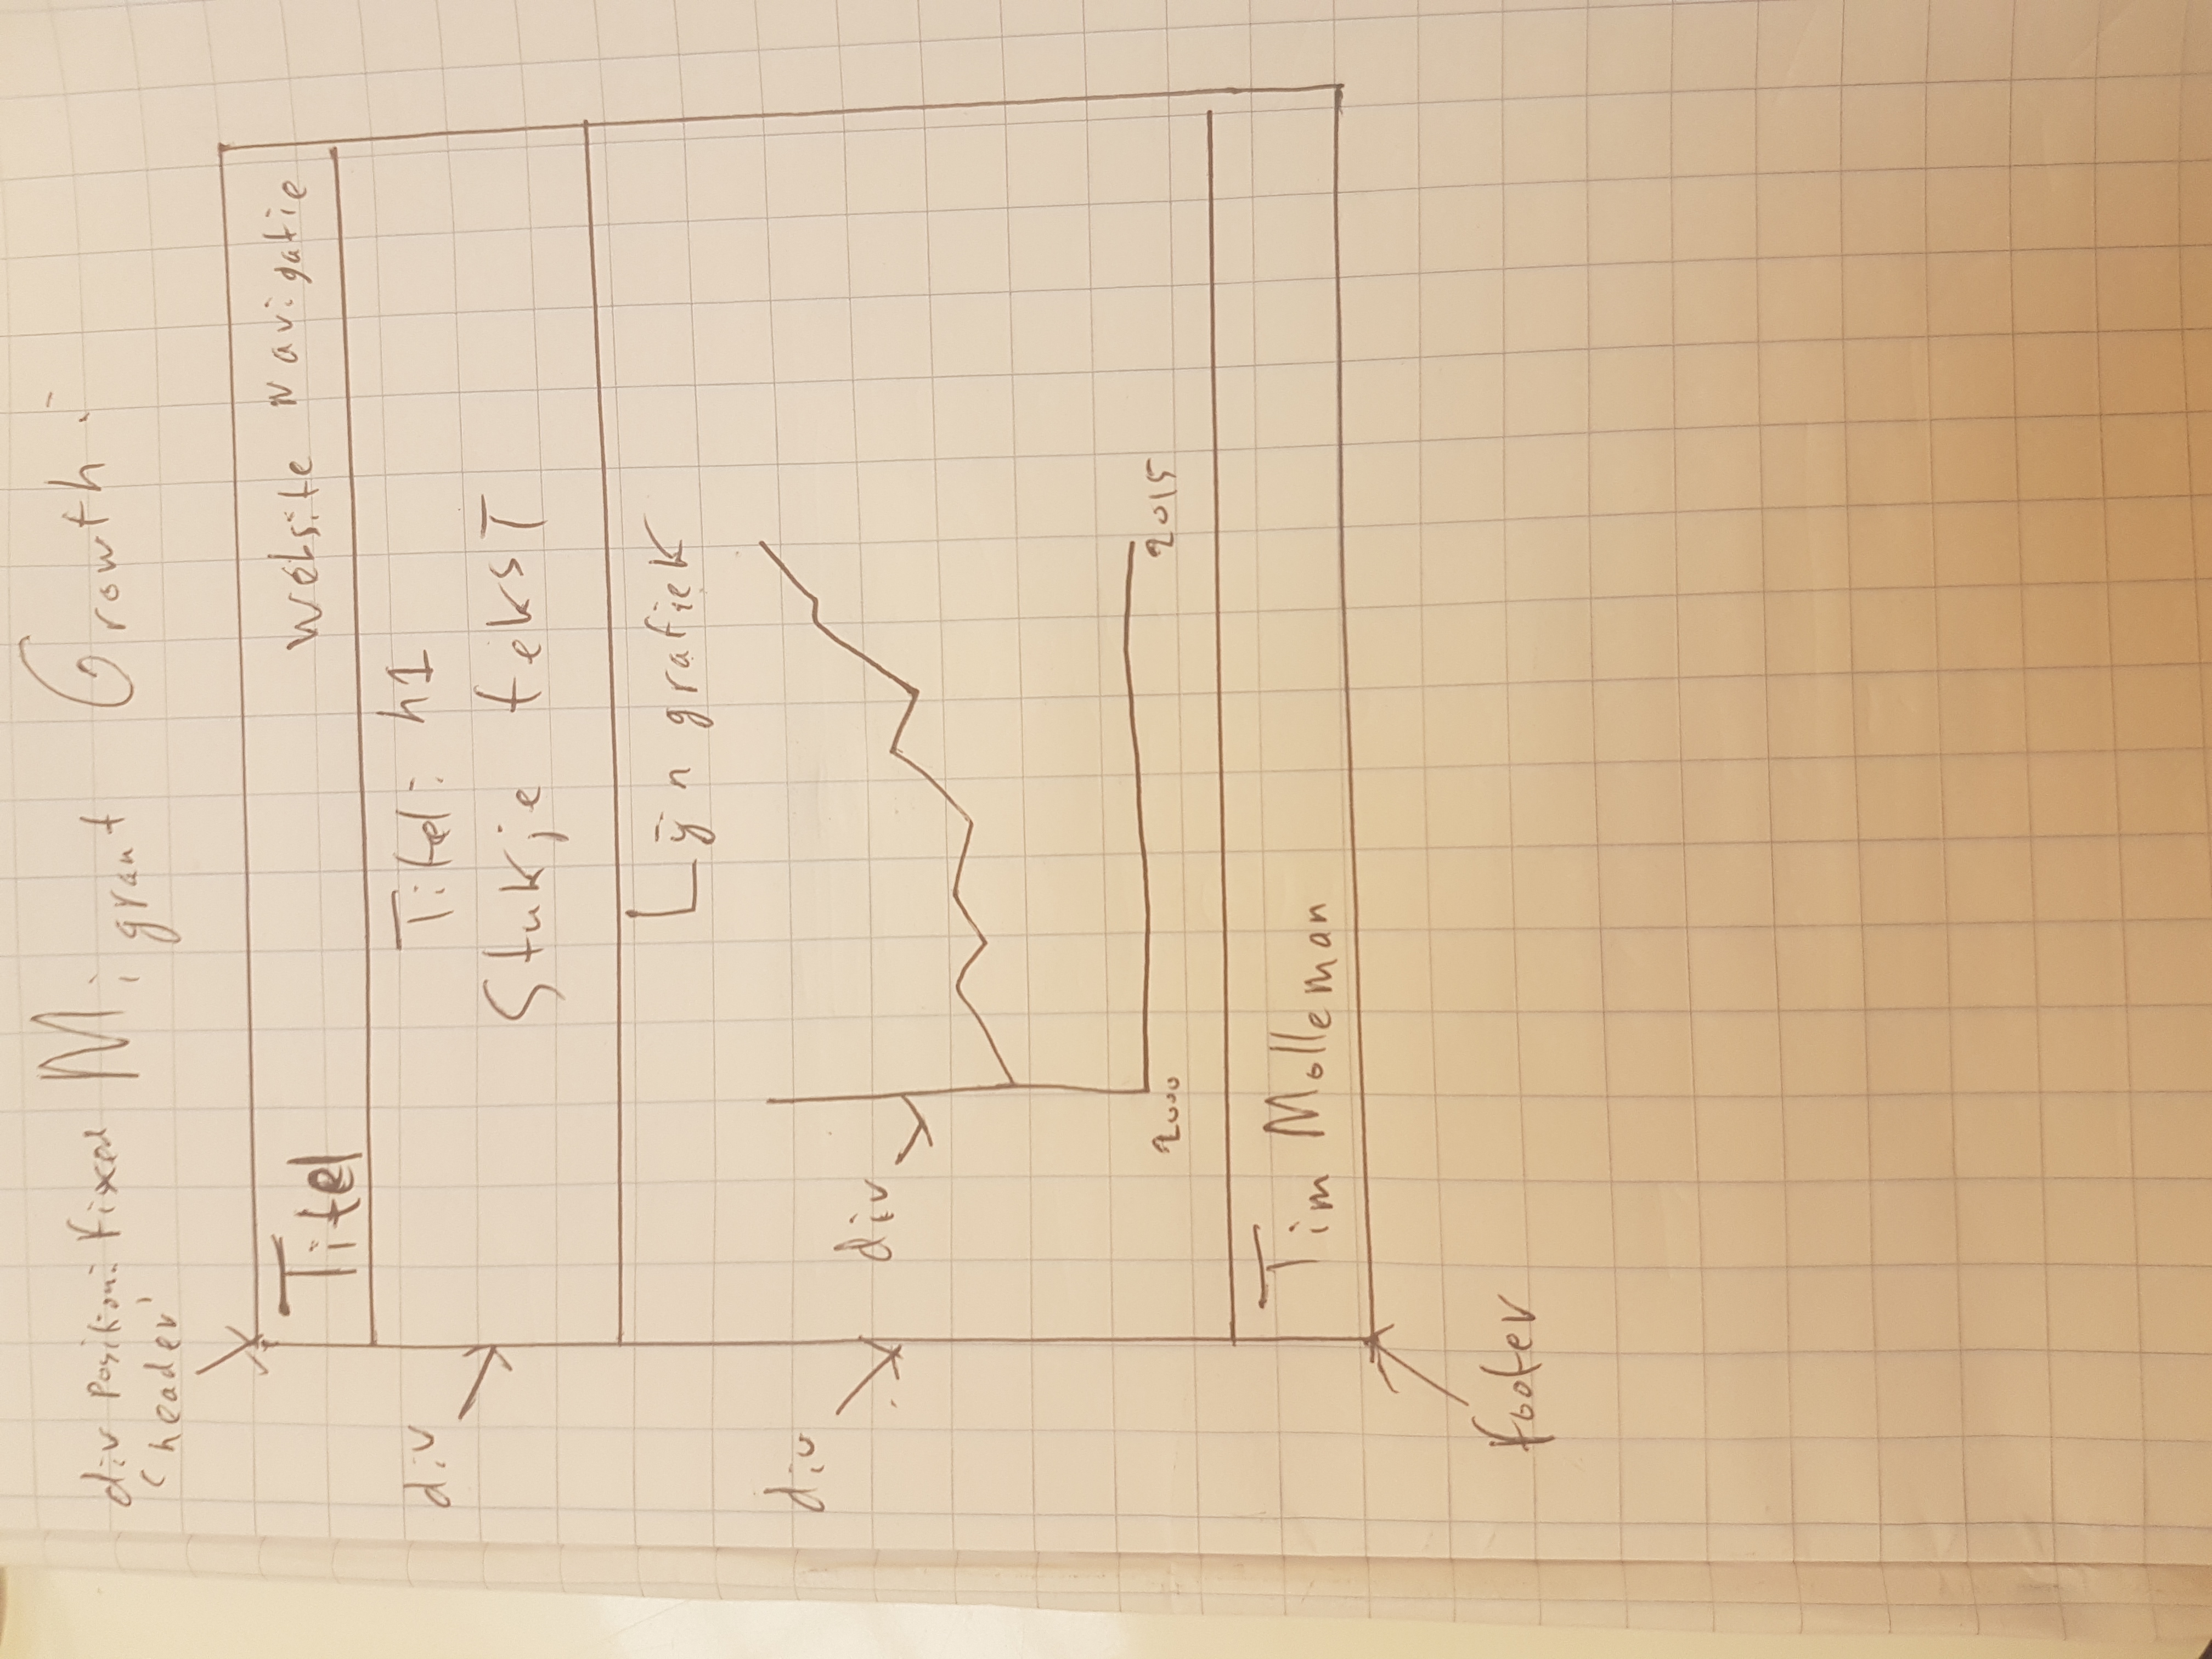 Migrant Growth:
div position: fixed
(header)
Titel website navigatie
div
Titel: h1
Stukje tekst
div
Lijn grafiek
div
2000 2015
Tim Molleman
footer